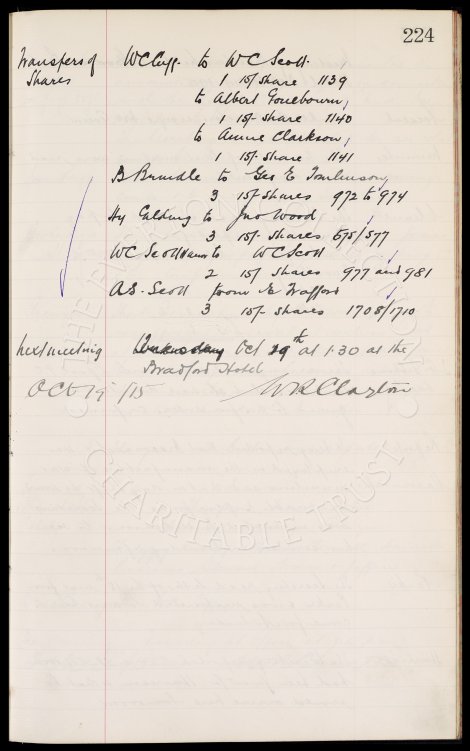 224
Transfers of Shares
W C Cuff. to W C Scott.
1 15/ share 1139
to Albert Gouebourn,
1 15/- share 1140
to Annie Clarkson,
1 15/- share 1141
B Brundle to Geo E Tomlinson,
3 15/- shares 972 to 974
Hy to Jno Wood,
3 15/- shares 575/577
W C Scott to W C Scott
2 15/ shares 977 and 981
A.S. Scott from E Trafford
3 15/- shares 1708/1710
Next meeting Oct 29th at 1.30 at the
Bradford Hotel
Oct 19/15 W R Clayton
THE CHARITABLE TRUST